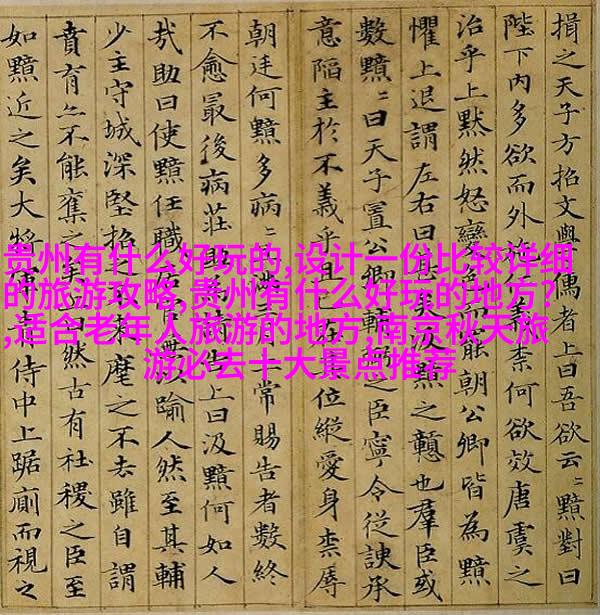 揖之天子方招文學儒者上曰吾欲云〻黯對曰
陛下內多欲而外施仁義柰何欲效唐虞之
治乎上默然怒變色而罷朝公卿皆為黯
懼上退謂左右曰甚矣汲黯之戇也羣臣或
數黯〻曰天子置公卿輔弼之臣寧令從諛承
意陷主於不義乎且已在其位縱愛身柰辱
朝廷何黯多病〻且滿三月上常賜告者數終
不愈最後病莊助為請告上曰汲黯何如人
哉助曰使黯任職居官無以踰人然至其輔
少主守城深堅招之不來麾之不去雖自謂
賁育亦不能奪之矣上曰然古有社稷之臣至
如黯近之矣大將軍青侍中上踞廁而視之
贵州有什么好玩的,设计一份比较详细
的旅游攻略,贵州有什么好玩的地方?
,适合老年人旅游的地方,南京秋天旅
游必去十大景点推荐